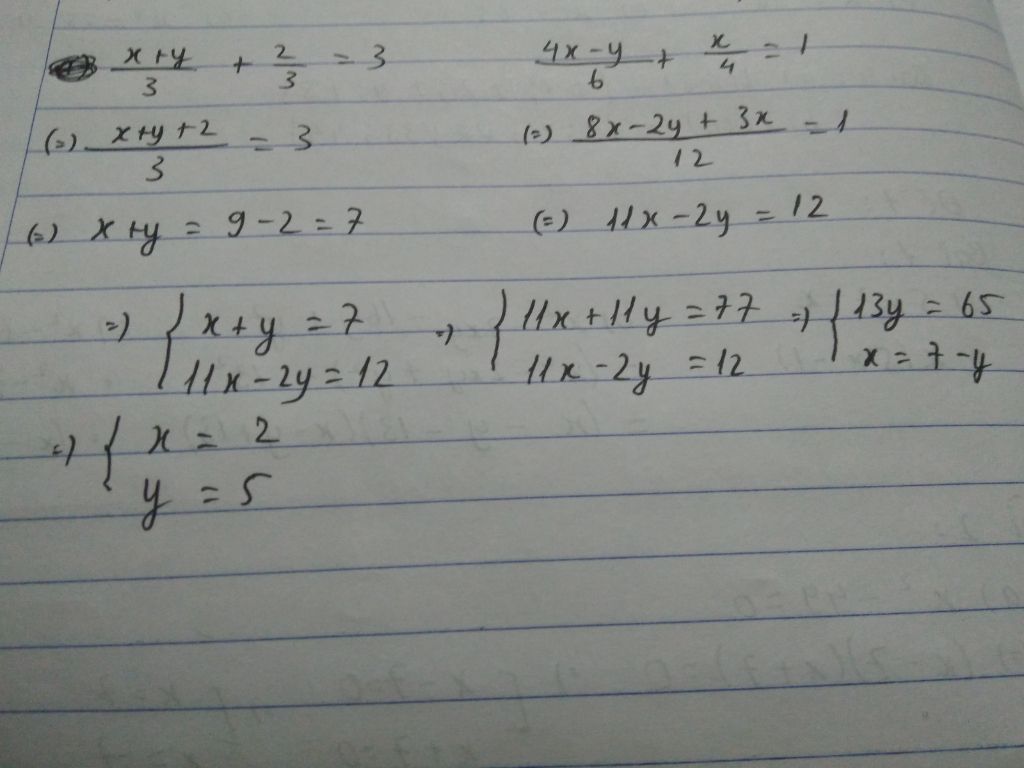 (x+y)/3 + 2/3 = 3    (4x-y)/6 + x/4 = 1
(=) (x+y+2)/3 = 3    (=) (8x-2y + 3x)/12 = 1
(=) x+y = 9-2 = 7    (=) 11x-2y = 12
=) { x+y = 7    =) { 11x+11y = 77    =) { 13y = 65
11x-2y = 12    11x-2y = 12    x = 7-y
=) { x = 2
y = 5